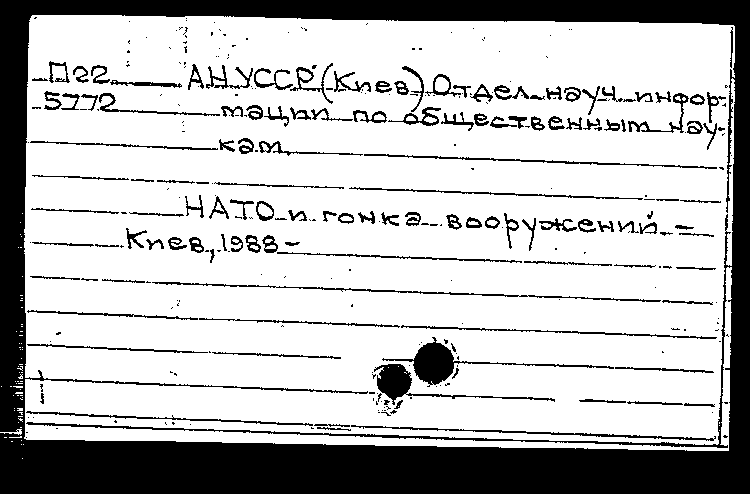 П22 АН УССР (Киев) Отдел науч. инфор-
5772 мации по общественным нау-
кам.
НАТО и гонка вооружений. -
Киев, 1988 -